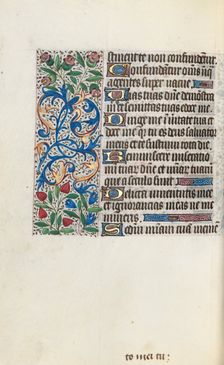 stinent te non confundentur
Confundātur om̄s iniq̄
agentes super vacue
Vias tuas dn̄e demōstra m̄
et semitas tuas edoce me
Dirige me ī veritate tua et
doce me quia tu es deus saluator
meus et te sustinui tota die
Reminiscere miseratio
nū tuar̄ dn̄e et mīar̄ tuar̄
que a seculo sunt
Delicta iuuentutis mee
et ignorancias meas ne me
mineris
Scdm mīam tuā memē
to mei tu: